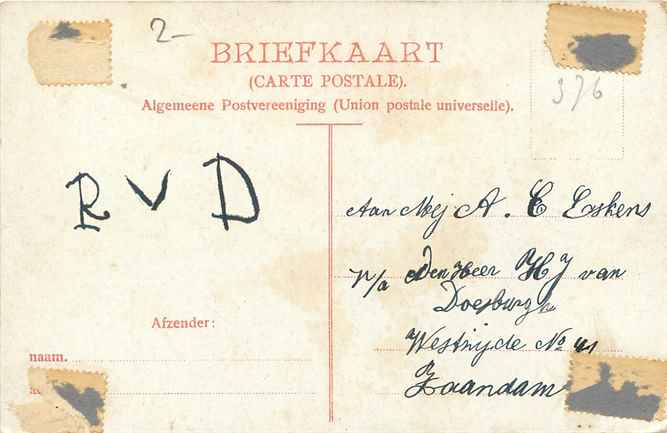 2-
BRIEFKAART
(CARTE POSTALE).
Algemeene Postvereeniging (Union postale universelle).
376
R V D
Aan Mej A. C Eskens
p/a den Heer H J van
Doesburgh
Westzijde No 41
Zaandam
Afzender:
naam.